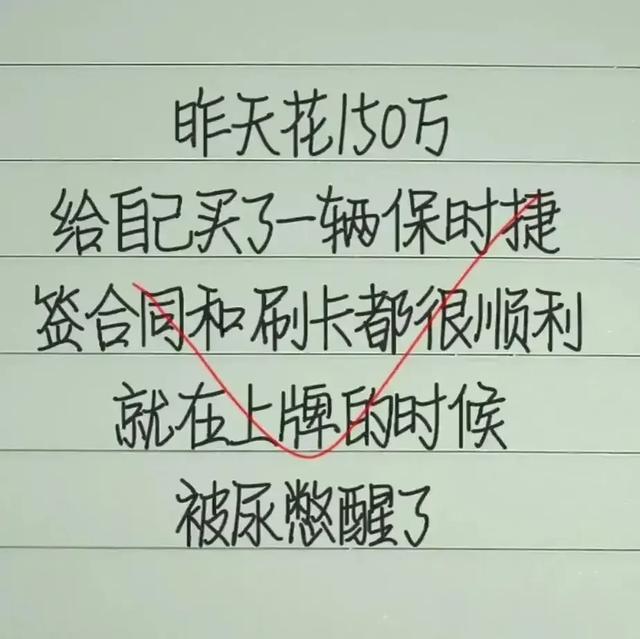 昨天花150万
给自己买了一辆保时捷
签合同和刷卡都很顺利
就在上牌的时候
被尿憋醒了